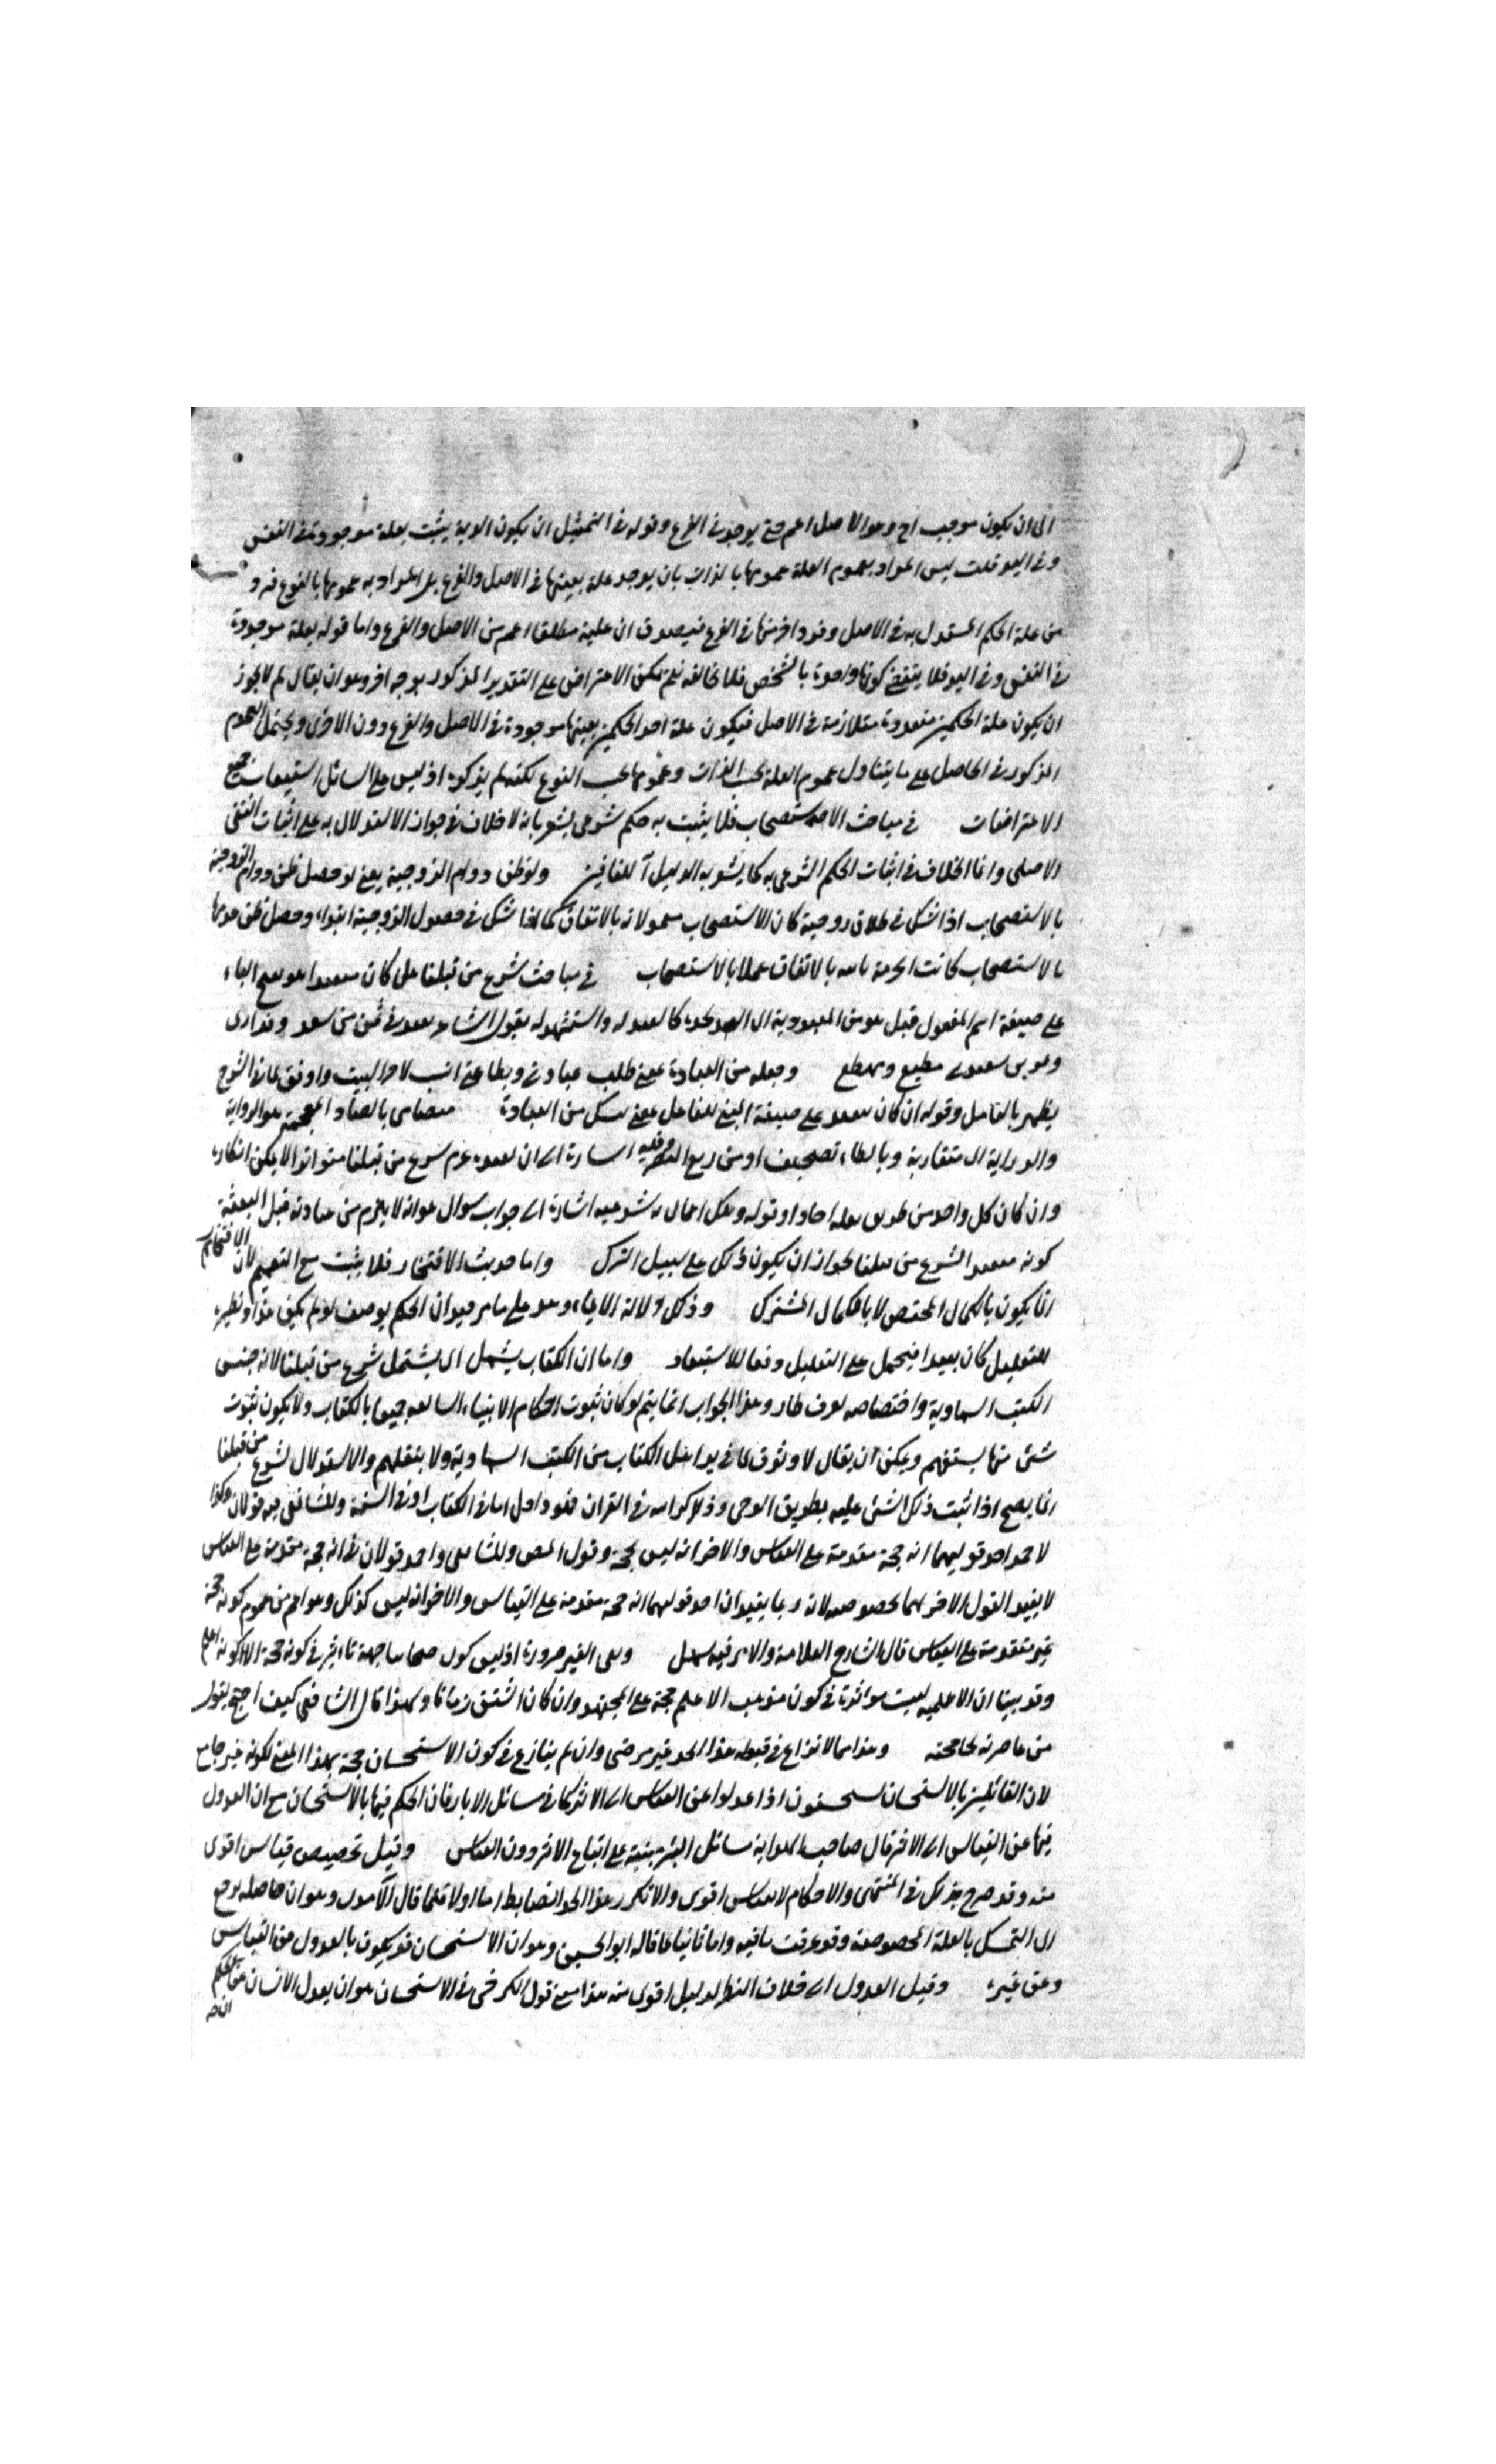 الى ان يكون موجب احد وهو الاصل اعم حتى يوجد في الفرع وقوله في التمثيل ان يكون الدية يثبت بعلة موجودة في النفس
وفي اليد قلت ليس المراد بعموم العلة عمومها بالذات بان يوجد علة بعينها في الاصل والفرع بل المراد به عمومها بالنوع فرد
من علة الحكم المستدل به في الاصل وفرد اخر منها في الفرع فيصدق ان علية مطلقا اعم من الاصل والفرع واما قوله بعلة موجودة
في النفس وفي اليد فلا يقتضي كونها واحدة بالشخص فلا يخالفه نعم يمكن الاعتراض على التقدير المذكور بوجه اخر وهو ان يقال لم لا يجوز
ان يكون علة الحكمين متعددة متلازمة في الاصل فيكون علة احد الحكمين بعينها موجودة في الاصل والفرع دون الاخرى ويحتمل العموم
المذكور في الحاصل على ما يتناول عموم العلة بحسب الذات وعمومها بحسب النوع لكنه لم يذكره اذ ليس على السائل استيعاب جميع
الاعتراضات في مباحث الاستصحاب فلا يثبت به حكم شرعي يشعر بانه لا خلاف في جواز الاستدلال به على اثبات النفي
الاصلي وانما الخلاف في اثبات الحكم الشرعي به كما يشعر به الدليل للنافين ولو ظن دوام الزوجية يعني لو حصل ظن دوام الزوجية
بالاستصحاب اذا شك في طلاق زوجية كان الاستصحاب معمولا به بالاتفاق كما اذا شك في حصول الزوجية ابتداء وحصل ظن عدمها
بالاستصحاب كانت الحرمة ثابتة بالاتفاق عملا بالاستصحاب في مباحث شرع من قبلنا هل كان متعبدا هو بفتح الباء
على صيغة اسم المفعول قيل هو من العبودية اي واستشهد له بقول الشاعر
ومطيع وجعله من العبادة بمعنى طلب عبادته وبطاعته انسب لاخر البيت واوفق بما في الشرح
يظهر بالتامل وقوله ان كان متعبد على صيغة المبني للفاعل بمعنى من العبادة بالضاد المعجمة هو الرواية
والدراية اي متقاربة وبالظاء تصحيف وقوله اشارة الى ان تعبده عدم شرع من قبلنا متواترا لا يمكن انكاره
وان كان كل واحد من طريق نقله احادا وقوله وتلك اعمال شرعية اشارة الى جواب سوال هو انه لا يلزم من عبادته قبل البعثة
كونه متعبدا بشرع من قبلنا لجواز ان يكون ذلك على سبيل التبرك واما حديث الافتخار فلا يثبت مع التعميم لان الافتخار
انما يكون بالكمال المختص لا بالكمال المشترك وذلك دلالة الايماء وهو على ما مر هو ان الحكم بوصف لو لم يكن هو او نظيره
للتعليل كان بعيدا فيحمل على التعليل دفعا للاستبعاد واما ان الكتاب يشمل اي يشتمل شرع من قبلنا لانه جنس
الكتب السماوية واختصاصه لعرف طار وهذا الجواب انما يتم لو كان ثبوت احكام الانبياء السالفة جميعا بالكتاب ولا يكون ثبوت
شئ منها بسنتهم ويمكن ان يقال لا وثوق بما في يد اهل الكتاب من الكتب السماوية ولا بنقلهم والاستدلال بشرع من قبلنا
انما يصح اذا ثبت ذلك الشئ عليه بطريق الوحي وذلك كرامة في القران فهو داخل اما في الكتاب او في السنة وللشافعي فيه قولان وكذا
لاحمد احد قوليهما انه حجة مقدمة على القياس والاخر انه ليس بحجة وقول المصنف وللشافعي واحمد قولان في انه حجة متقدمة على القياس
لا يفيد القول الاخر لهما بخصوصه لانه ربما يفيد ان احد قوليهما انه حجة مقدمة على القياس والاخر انه ليس كذلك وهو اعم من عموم كونه حجة
غير متقدمة على القياس قال الشارح العلامة والامر فيه سهل ونفي الغير ضرورة اذ ليس كون صحابيا جهة تاثير في كونه حجة الا كونه اعلم
وقد بينا ان الاعلمية ليست مؤثرة في كون مذهب الاعلم حجة على المجتهد وان كان اسبق زمانا ولهذا قال الشافعي كيف احتج بقول
من عاصرته لحاججته وهذا مما لا نزاع في قبوله هذا الحد غير مرضي وان لم ينازع في كون الاستحسان حجة بهذا المعنى لكونه غير جامع
لان القائلين بالاستحسان يستحسنون اذا عدلوا عن القياس الى الاثر كما في مسائل الابار فان الحكم فيها بالاستحسان مع ان العدول
فيها عن القياس الى الاثر قال صاحب الهداية مسائل البئر مبنية على اتباع الاثر دون القياس وقيل تخصيص قياس اقوى
منه وقد صرح بذلك في المنتهى والاحكام لا بقياس اقوى والا تكرر هذا الحد انضابط اما اولا فلما قال الآمدي وهو ان حاصله يرجع
الى التمسك بالعلة المخصوصة وقد عرفت ما فيه واما ثانيا فما قاله ابو الحسين وهو ان الاستحسان قد يكون بالعدول عن القياس
وعن غيره وقيل العدول الى خلاف النظر لدليل اقوى منه هذا معنى قول الكرخي في الاستحسان هو ان يعدل الانسان عن حكم